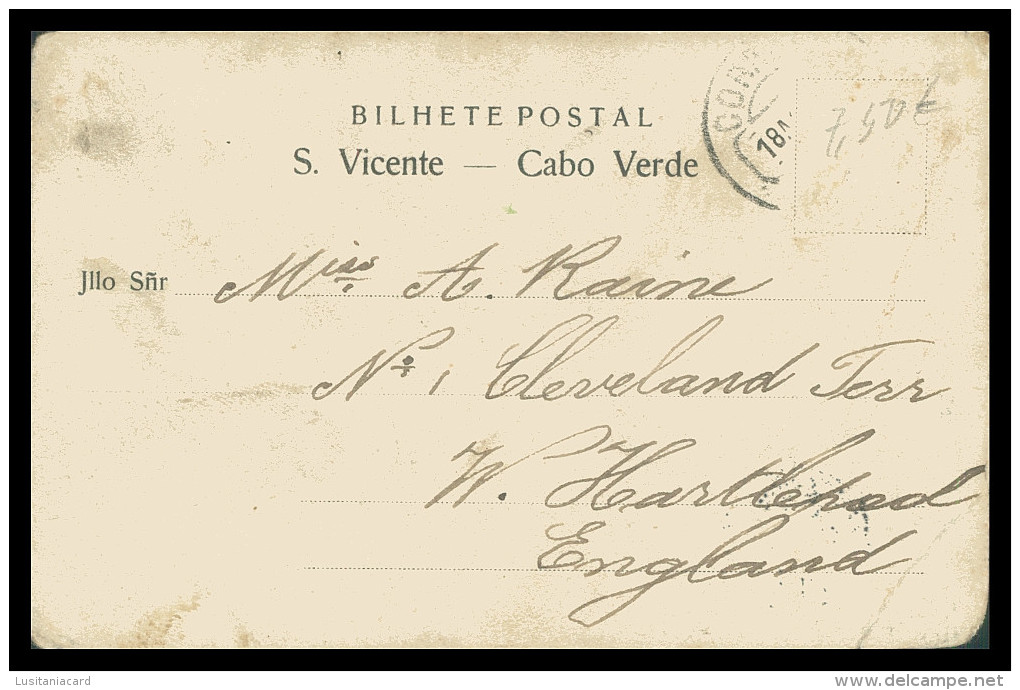 BILHETE POSTAL
S. Vicente — Cabo Verde
7,50 €
18A
Jllo Sñr Miss A. Raine
Nº 1 Cleveland Terr
W. Hartlepool
England
Lusitaniacard
delcampe.net